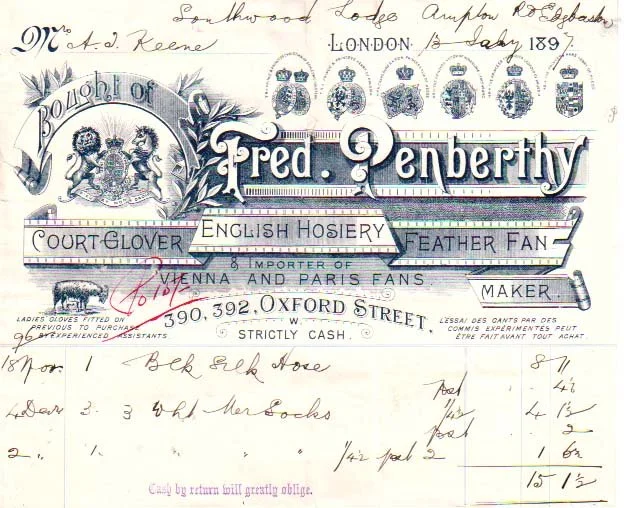 Southwood Lodge Ampton Rd Edgbaston
Mrs A. J. Keene
LONDON 13 July 1897.
Bought of
Fred. Penberthy
COURT GLOVER ENGLISH HOSIERY FEATHER FAN
& IMPORTER OF
VIENNA AND PARIS FANS. MAKER.
390, 392, OXFORD STREET,
W.
STRICTLY CASH.
LADIES GLOVES FITTED ON
PREVIOUS TO PURCHASE
BY EXPERIENCED ASSISTANTS.
L'ESSAI DES GANTS PAR DES
COMMIS EXPÉRIMENTÉS PEUT
ÊTRE FAIT AVANT TOUT ACHAT.
96
18 Nov. 1 Blk Silk Hose 8 11
post 4½
4 Dec 3 3 Wht Mer Socks 1/4½ 4 1½
post 2
2 " 1 " " " 1/4½ post 2 1 6½
15 1½
Cash by return will greatly oblige.